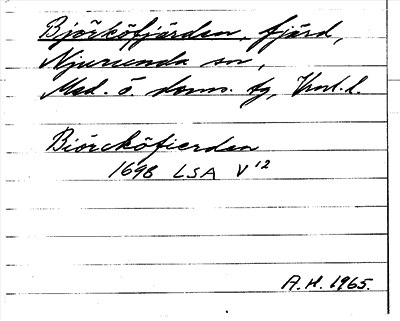 Björköfjärden, fjärd,
Njurunda sn,
Med. ö. doms. tg, Vnl. l.
Biörcköfierden
1698 LSA V 12
A.H. 1965.